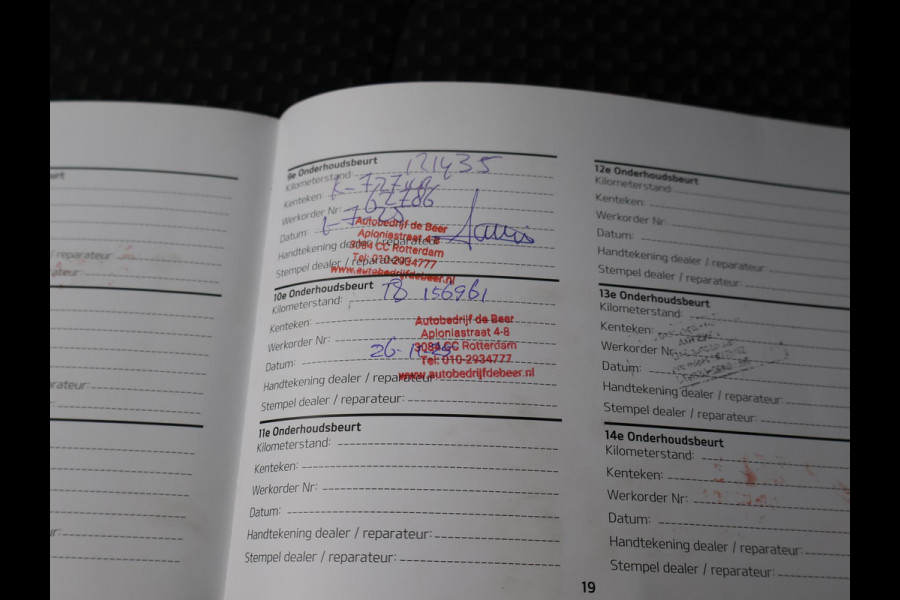 9e Onderhoudsbeurt
Kilometerstand: 121435
Kenteken:
Werkorder Nr: 62786
Datum:
Handtekening dealer / reparateur
Stempel dealer / reparateur:
Autobedrijf de Beer
Aploniastraat 4-8
3084 CC Rotterdam
Tel: 010-2934777
www.autobedrijfdebeer.nl
10e Onderhoudsbeurt
Kilometerstand: 156961
Kenteken:
Werkorder Nr:
Datum:
Handtekening dealer / reparateur
Stempel dealer / reparateur:
Autobedrijf de Beer
Aploniastraat 4-8
3084 CC Rotterdam
Tel: 010-2934777
www.autobedrijfdebeer.nl
11e Onderhoudsbeurt
Kilometerstand:
Kenteken:
Werkorder Nr:
Datum:
Handtekening dealer / reparateur:
Stempel dealer / reparateur:
12e Onderhoudsbeurt
Kilometerstand:
Kenteken:
Werkorder Nr:
Datum:
Handtekening dealer / reparateur:
Stempel dealer / reparateur:
13e Onderhoudsbeurt
Kilometerstand:
Kenteken:
Werkorder Nr:
Datum:
Handtekening dealer / reparateur:
Stempel dealer / reparateur:
14e Onderhoudsbeurt
Kilometerstand:
Kenteken:
Werkorder Nr:
Datum:
Handtekening dealer / reparateur:
Stempel dealer / reparateur:
19